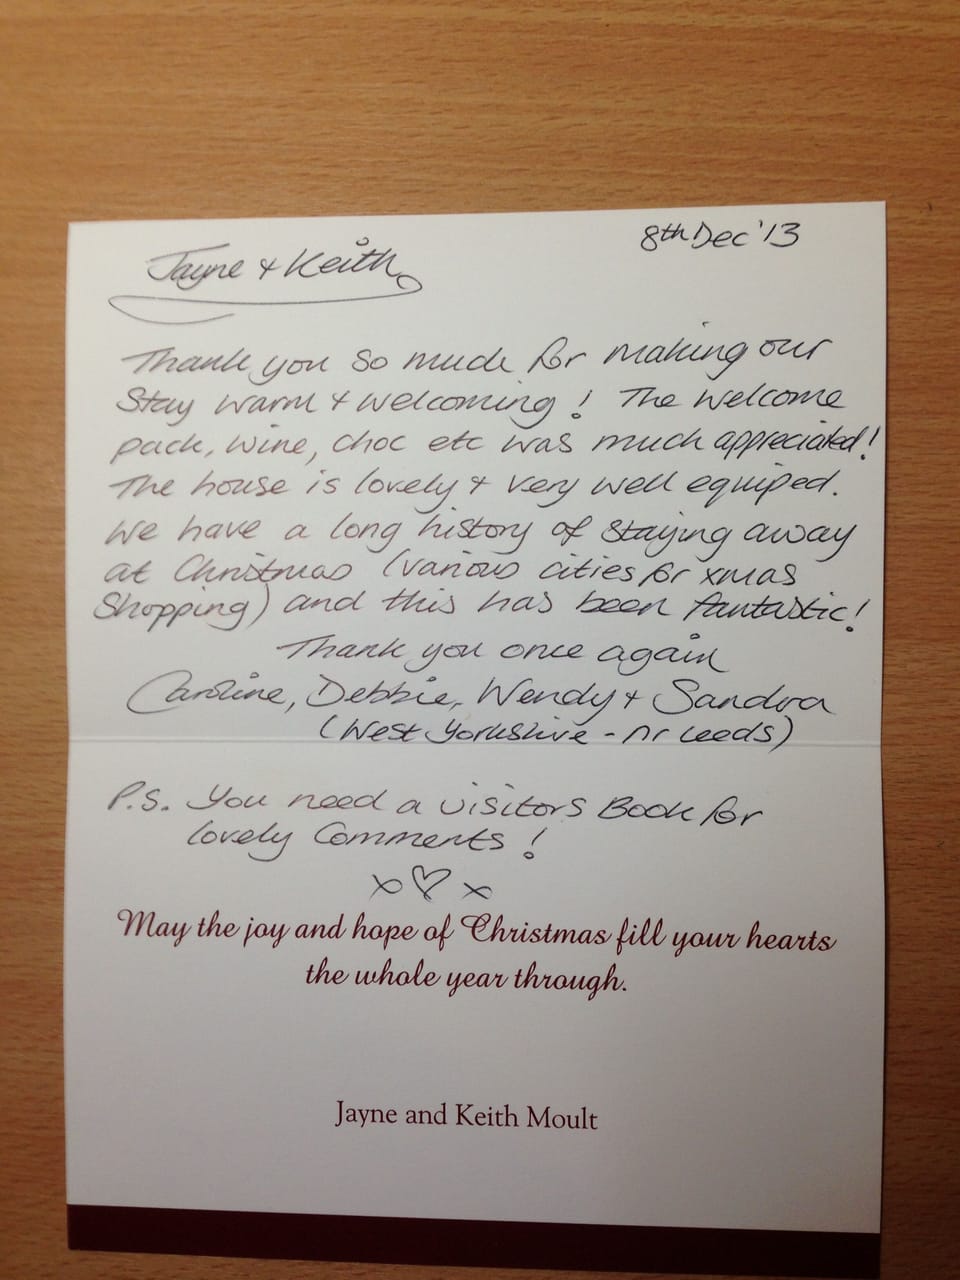 8th Dec '13
Jayne & Keith
Thank you so much for making our
stay warm & welcoming! The welcome
pack, wine, choc etc was much appreciated!
The house is lovely & very well equiped.
We have a long history of staying away
at Christmas (various cities for xmas
shopping) and this has been fantastic!
Thank you once again
Caroline, Debbie, Wendy & Sandra
(West Yorkshire - nr Leeds)
P.S. You need a visitors Book for
lovely comments!
x♡x
May the joy and hope of Christmas fill your hearts
the whole year through.
Jayne and Keith Moult